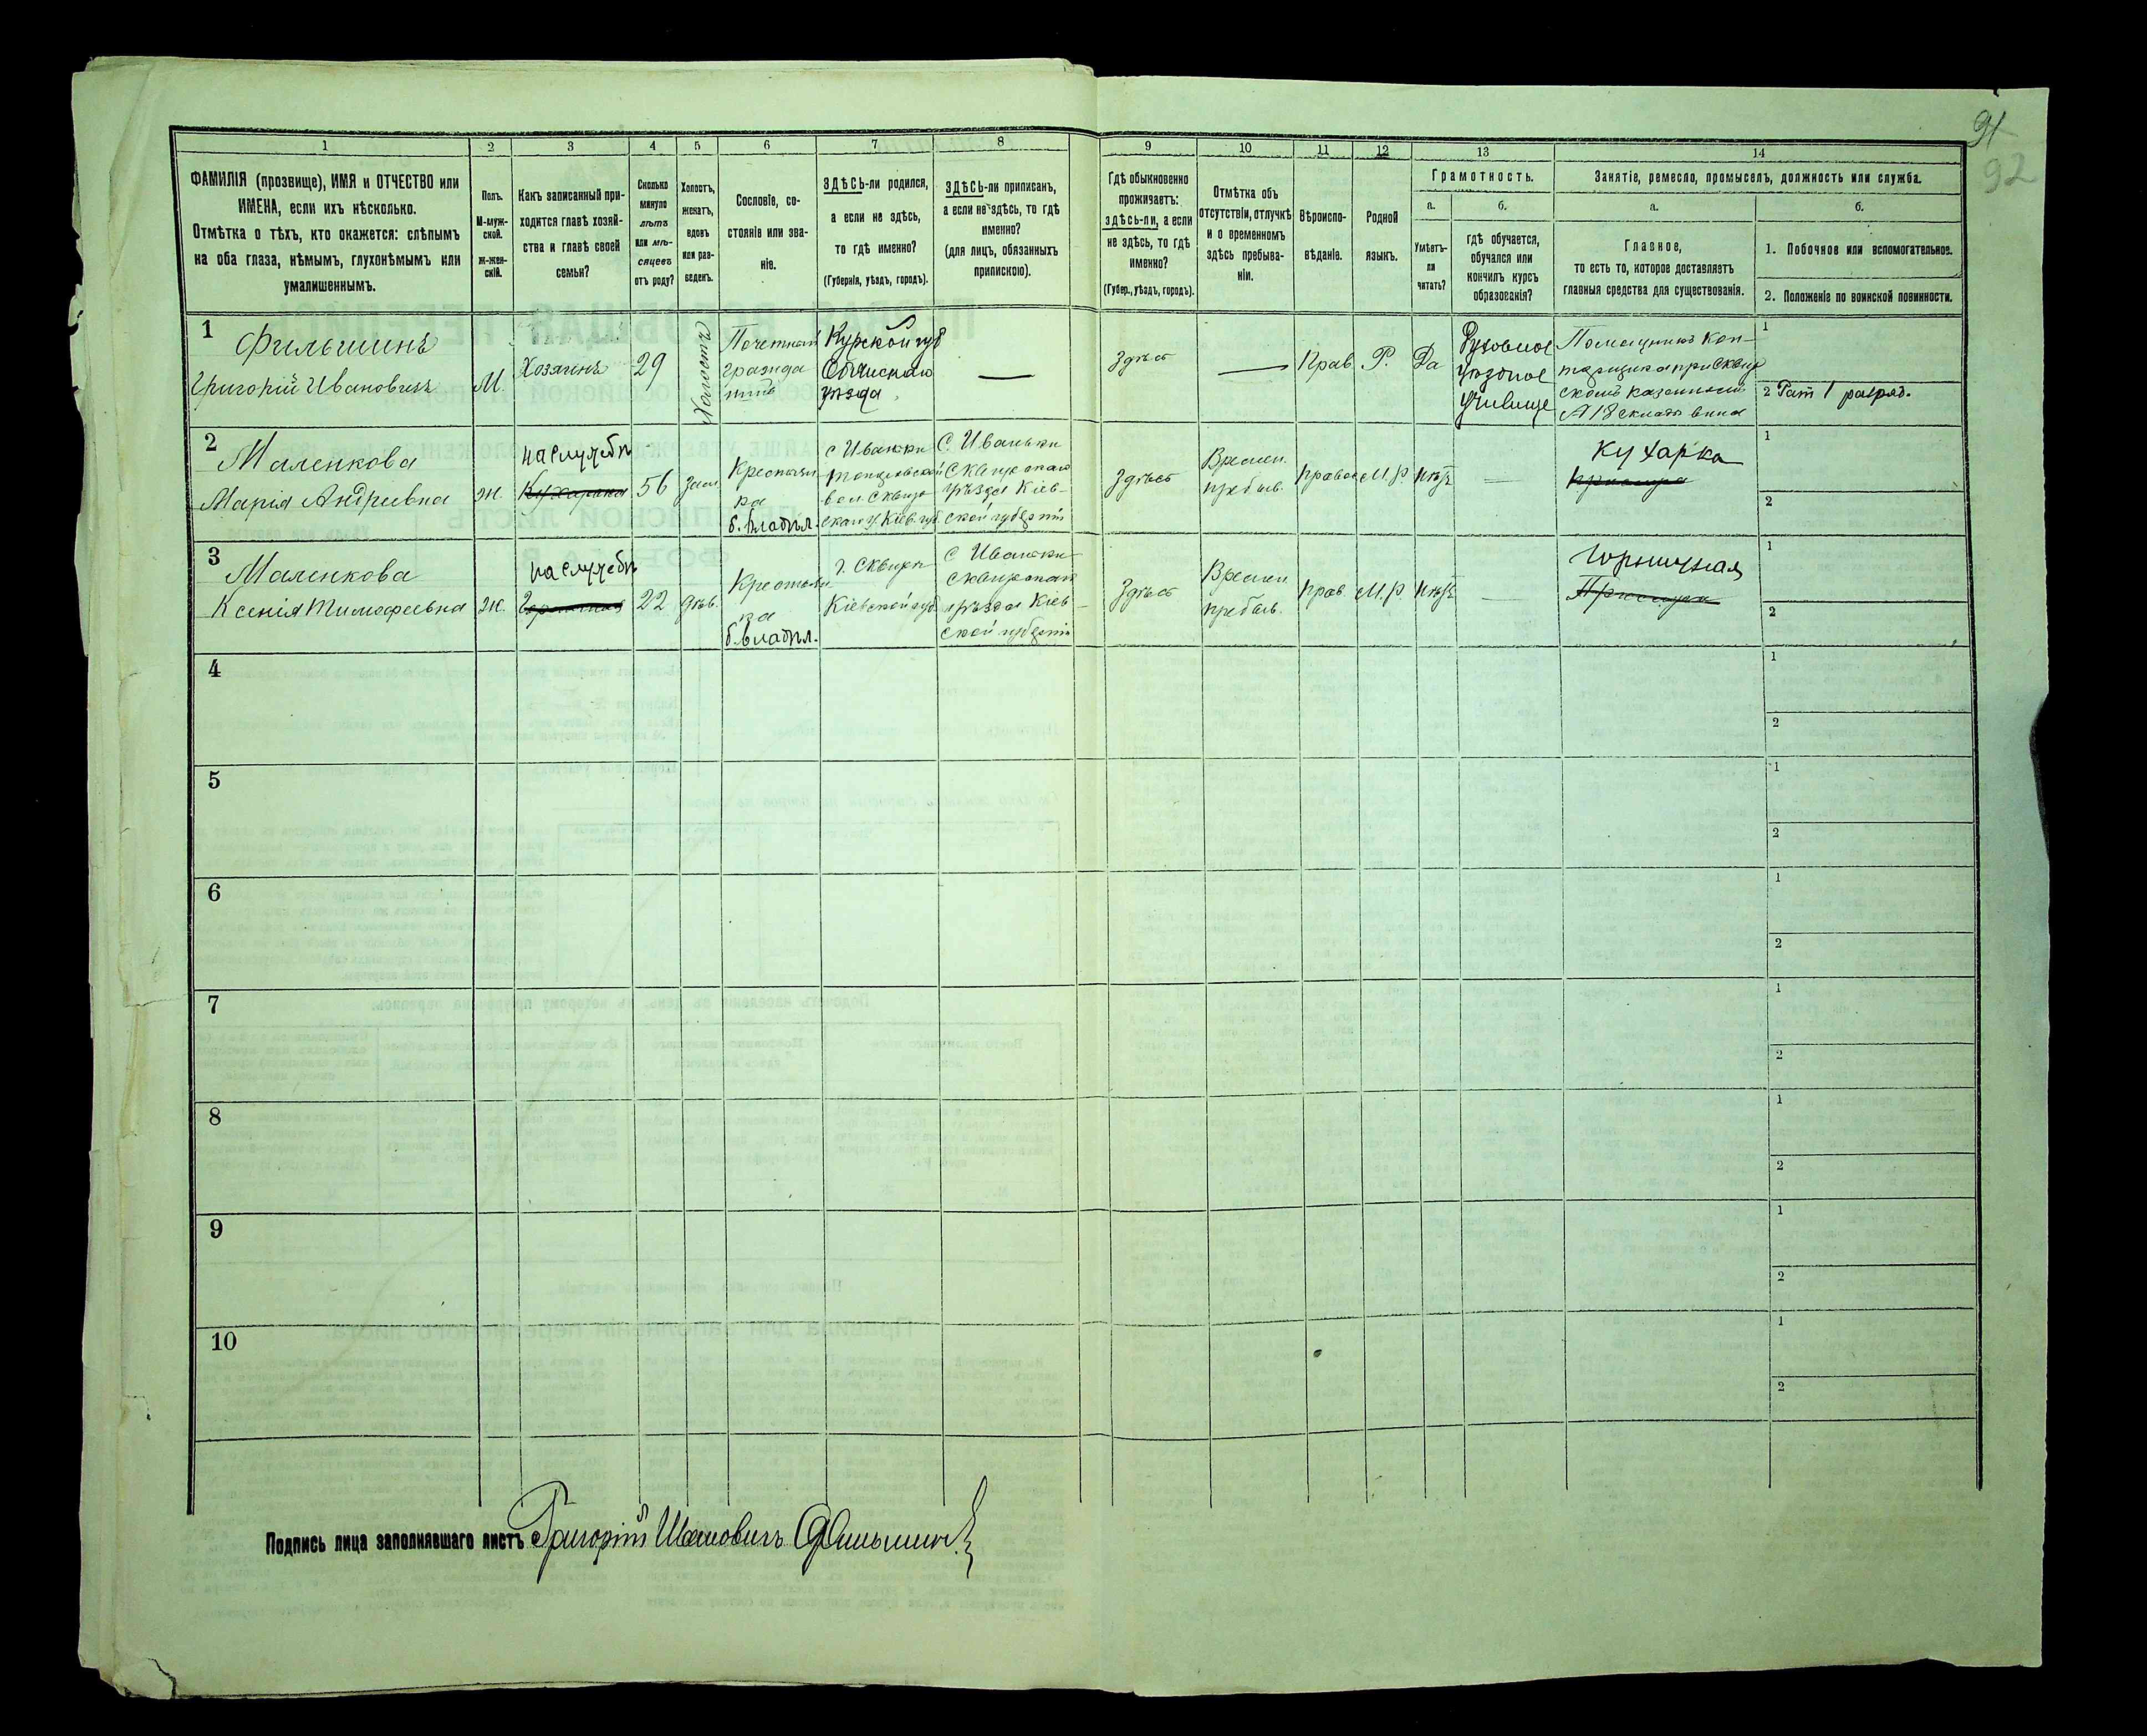 91
92
1
2
3
4
5
6
7
8
9
10
11
12
13
14
ФАМИЛІЯ (прозвище), ИМЯ и ОТЧЕСТВО или
ИМЕНА, если ихъ нѣсколько.
Отмѣтка о тѣхъ, кто окажется: слѣпымъ
на оба глаза, нѣмымъ, глухонѣмымъ или
умалишеннымъ.
Полъ.
М-муж-
ской.
Ж-жен-
скій.
Какъ записанный при-
ходится главѣ хозяй-
ства и главѣ своей
семьи?
Сколько
минуло
лѣтъ
или мѣ-
сяцевъ
отъ роду?
Холостъ,
женатъ,
вдовъ
или раз-
веденъ.
Сословіе, со-
стояніе или зва-
ніе.
ЗДѢСЬ-ли родился,
а если не здѣсь,
то гдѣ именно?
(Губернія, уѣздъ, городъ).
ЗДѢСЬ-ли приписанъ,
а если не здѣсь, то гдѣ
именно?
(для лицъ, обязанныхъ
припискою).
Гдѣ обыкновенно
проживаетъ:
здѣсь-ли, а если
не здѣсь, то гдѣ
именно?
(Губер., уѣздъ, городъ).
Отмѣтка объ
отсутствіи, отлучкѣ
и о временномъ
здѣсь пребыва-
ніи.
Вѣроиспо-
вѣданіе.
Родной
языкъ.
Грамотность.
а.
Умѣетъ-
ли
читать?
б.
гдѣ обучается,
обучался или
кончилъ курсъ
образованія?
Занятіе, ремесло, промыселъ, должность или служба.
а.
Главное,
то есть то, которое доставляетъ
главныя средства для существованія.
б.
1. Побочное или вспомогательное.
2. Положеніе по воинской повинности.
1
Фильшинъ
Григорій Ивановичъ
М.
Хозяинъ
29
Холостъ
Почетный
гражда
нинъ
Курской губ
уѣзда
—
Здѣсь
—
Прав.
Р.
Да
Духовное
уѣздное
училище
Помощникъ кон-
при Сквир
скомъ казенномъ
№ 18 складѣ вина
1
2 Рат 1 разряд.
2
Маленкова
Марія Андреевна
ж.
на службѣ
Кухарка
56
зам.
Крестьян
ка
б. владѣл.
с Иваньки
вол. Сквир
скаго у. Кіев. губ.
С. Иваньки
Сквирскаго
уѣзда Кіев-
ской губерніи
Здѣсь
Времен.
пребыв.
Правос
М.р
нѣтъ
—
Кухарка
Прислуга
1
2
3
Маленкова
Ксенія Тимофеевна
ж.
на службѣ
22
дѣв.
Крестьян
ка
б. владѣл.
г. Сквири
Кіевской губ.
С Иваньки
Сквирскаго
уѣзда Кіев-
ской губерніи
Здѣсь
Времен
пребыв.
Прав
М.р
нѣтъ
—
Горничная
Прислуга
1
2
4
1
2
5
1
2
6
1
2
7
1
2
8
1
2
9
1
2
10
1
2
Подпись лица заполнявшаго листъ Григорій Ивановичъ Фильшинъ